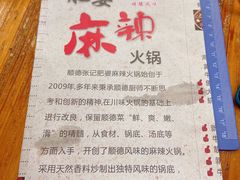 肥婆
麻辣
火锅
顺德张记肥婆麻辣火锅始创于
2009年,多年来秉承顺德厨师不断思
考和创新的精神,在川味火锅的基础上
进行改良，保留顺德菜“鲜，爽，嫩，
滑”的精髓，从食材、锅底、汤底等
方面入手，开创了顺德风味的麻辣火锅。
采用天然香料炒制出独特风味的锅底，